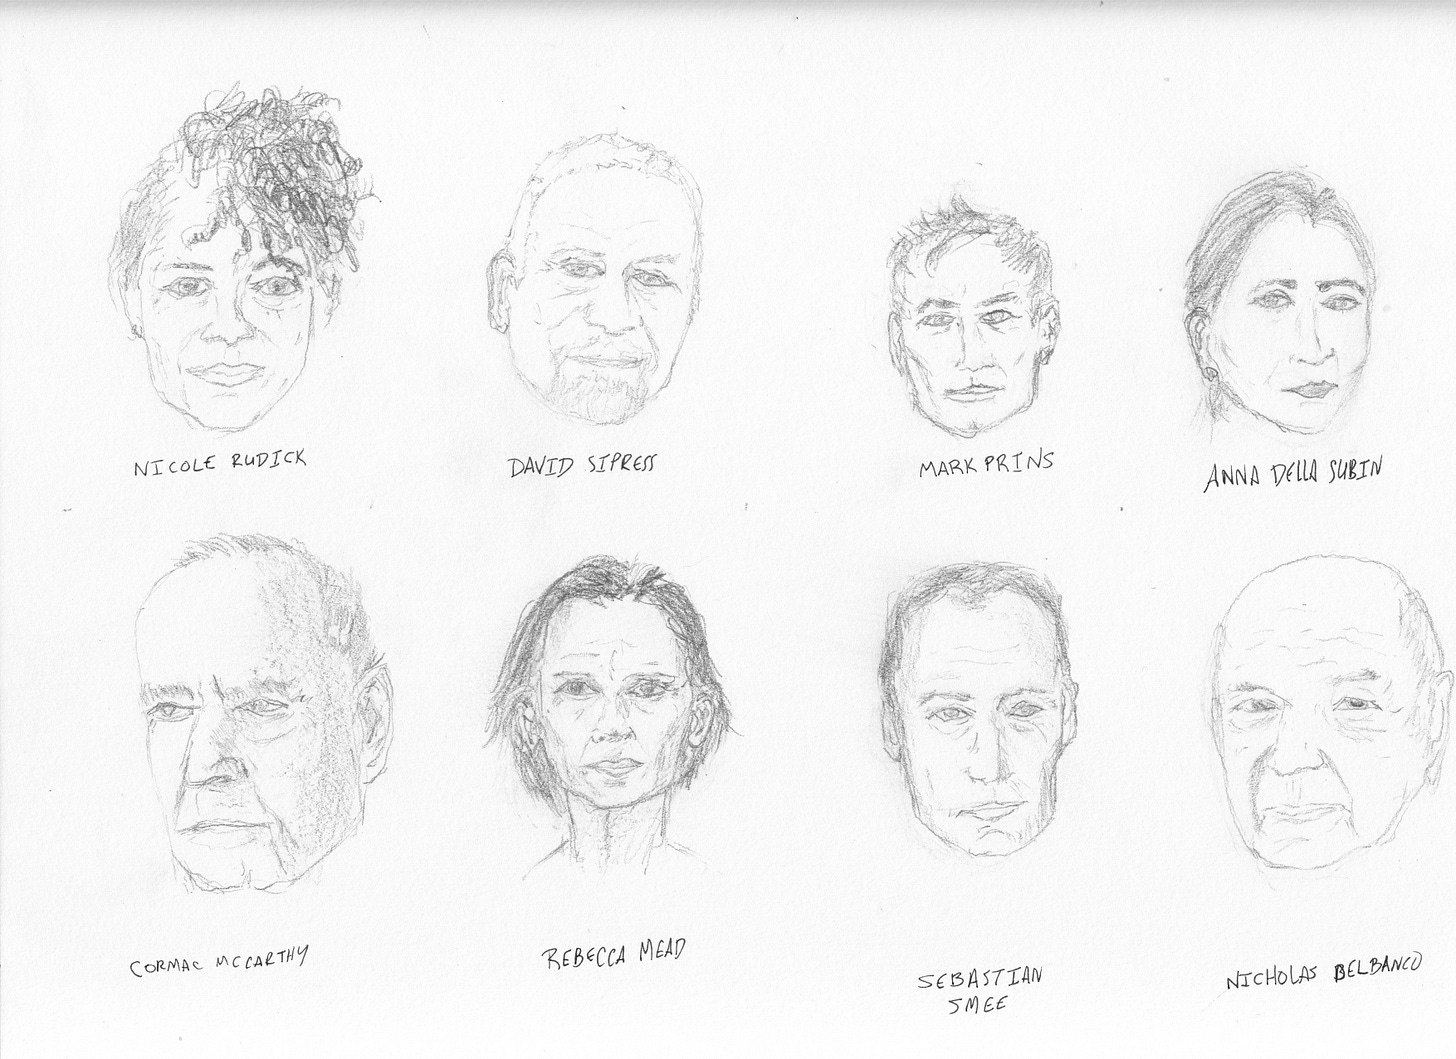 NICOLE RUDICK
DAVID SIPRESS
MARK PRINS
ANNA DELLA SUBIN
CORMAC MCCARTHY
REBECCA MEAD
SEBASTIAN
SMEE
NICHOLAS BELBANCO